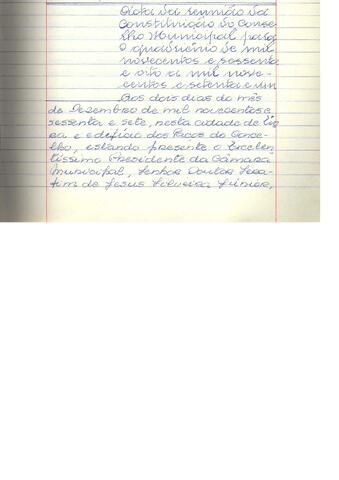 Acta da reunião da
Constituição do Conse-
lho Municipal para
o quadriénio de mil
novecentos e sessenta
e oito a mil nove-
centos e setenta e um
Aos dois dias do mês
de Dezembro de mil novecentos e
sessenta e sete, nesta cidade de
e edifício dos Paços do Conce-
lho, estando presente o Excelen-
tíssimo Presidente da Câmara
Municipal, Senhor Doutor Sera-
fim de Jesus Silveira Júnior,